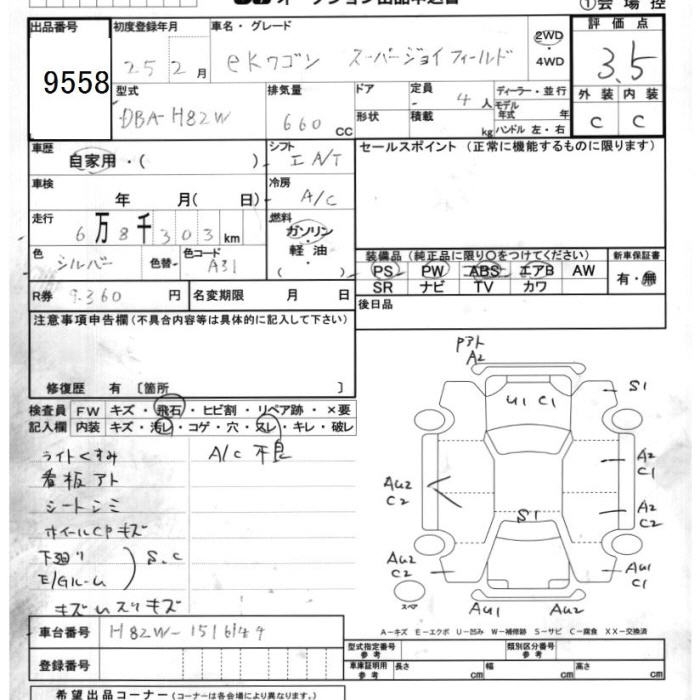 出品番号 初度登録年月 車名・グレード ①会場控
9558 25 2月 eKワゴン スーパージョイフィールド 2WD ・ 4WD 評価点 3.5
型式 排気量 ドア 定員 4人 ディーラー・並行
DBA-H82W 660 CC 形状 積載 kg モデル年式 年 ハンドル 左・右
外装 内装
C C
車歴 自家用・( ) シフト I A/T セールスポイント (正常に機能するものに限ります)
車検 年 月( 日) 冷房 A/C
走行 6万8千303km 燃料 ガソリン・軽油・( )
色 シルバー 色替・ 色コード A31
装備品 (純正品に限り○をつけてください) 新車保証書
PS PW ABS エアB AW 有・無
SR ナビ TV カワ
R券 9.360 円 名変期限 月 日 後日品
注意事項申告欄 (不具合内容等は具体的に記入して下さい)
修復歴 有 〔箇所 〕
検査員記入欄 FW キズ・飛石・ヒビ割・リペア跡・×要
内装 キズ・汚レ・コゲ・穴・スレ・キレ・破レ
ライトくすみ A/C 不良
看板アト
シートシミ
ホイールCPキズ
下廻り
E/Gルーム
S.C
キズ いスリキズ
Pアト
A2
U1 C1
S1
A2
C1
AU2
C2
A2
C2
S1
AU2
C2
AU1
C1
スペア
AU1 AU2
A-キズ E-エクボ U-凹み W-補修跡 S-サビ C-腐食 XX-交換済
車台番号 H82W-1516144
登録番号
型式指定番号 参考 類別区分番号 参考
車庫証明用 参考 長さ cm 幅 cm 高さ cm
希望出品コーナー (コーナーは各会場により異なります。)